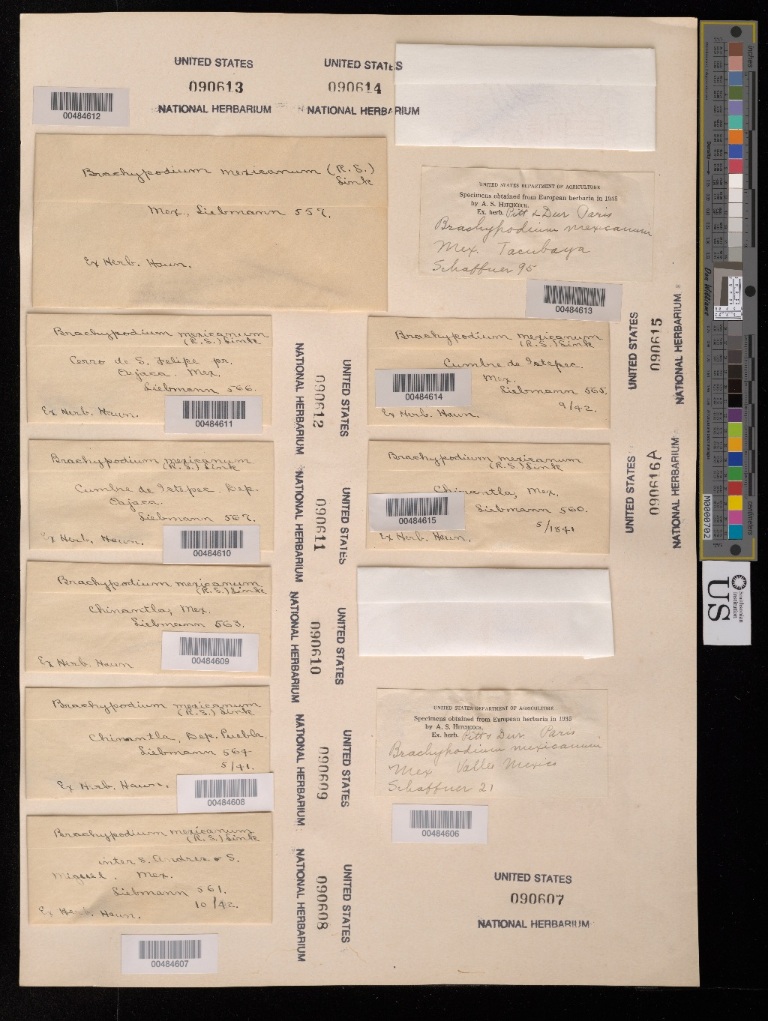 UNITED STATES
090613
NATIONAL HERBARIUM
UNITED STATES
090614
NATIONAL HERBARIUM
00484612
Brachypodium mexicanum (R.S.)
Link
Mex., Liebmann 557.
Ex Herb. Haun.
UNITED STATES DEPARTMENT OF AGRICULTURE
Specimens obtained from European herbaria in 1935
by A. S. Hitchcock.
Ex. herb. Pitt & Dur Paris
Brachypodium mexicanum
Mex. Tacubaya
Schaffner 95
00484613
Brachypodium mexicanum
(R.S.) Link
Cerro de S. Felipe pr.
Oajaca. Mex.
Liebmann 566.
Ex Herb. Haun.
00484611
UNITED STATES
090612
NATIONAL HERBARIUM
Brachypodium mexicanum
(R.S.) Link
Cumbre de Istepec.
Mex.
Liebmann 565.
9/42.
Ex Herb. Haun.
00484614
UNITED STATES
090615
NATIONAL HERBARIUM
Brachypodium mexicanum
(R.S.) Link
Cumbre de Istepec Dep.
Oajaca.
Liebmann 567.
Ex Herb. Haun.
00484610
UNITED STATES
090611
NATIONAL HERBARIUM
Brachypodium mexicanum
(R.S.) Link
Chinantla, Mex.
Liebmann 560.
5/1841
Ex Herb. Haun.
00484615
UNITED STATES
090616A
NATIONAL HERBARIUM
Brachypodium mexicanum
(R.S.) Link
Chinantla, Mex.
Liebmann 563.
Ex Herb. Haun
00484609
UNITED STATES
090610
NATIONAL HERBARIUM
Brachypodium mexicanum
(R.S.) Link
Chinantla, Dep. Puebla
Liebmann 564
5/41.
Ex Herb. Haun.
00484608
UNITED STATES
090609
NATIONAL HERBARIUM
UNITED STATES DEPARTMENT OF AGRICULTURE
Specimens obtained from European herbaria in 1935
by A. S. Hitchcock.
Ex. herb. Pitt & Dur Paris
Brachypodium mexicanum
Mex Valles Mexico
Schaffner 21
00484606
Brachypodium mexicanum
(R.S.) Link
inter S. Andres & S.
Miguel. Mex.
Liebmann 561.
10/42.
Ex Herb. Haun.
00484607
UNITED STATES
090608
NATIONAL HERBARIUM
UNITED STATES
090607
NATIONAL HERBARIUM
N0000702
Smithsonian
Institution
US